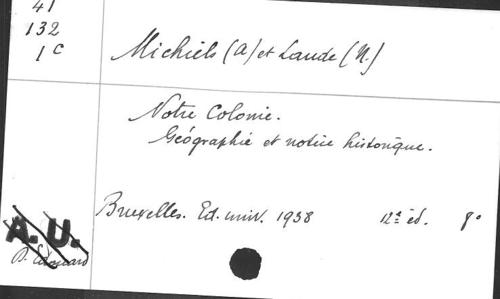 41
132
1 c
Michiels (A) et Laude (N.)
Notre Colonie.
Géographie et notice historique.
Bruxelles. Ed. univ. 1938 12e éd. 8°
A. U.
B. Edouard